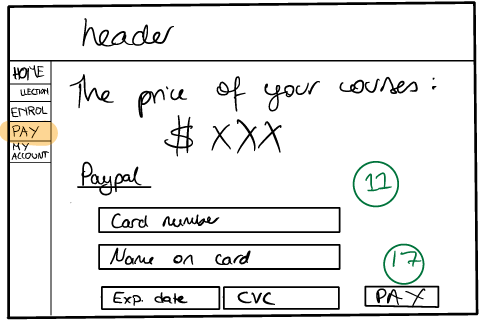 header
HOME
LLECTION
ENROL
PAY
MY
ACCOUNT
The price of your courses:
$ XXX
Paypal
12
Card number
Name on card
17
Exp. date
CVC
PAY